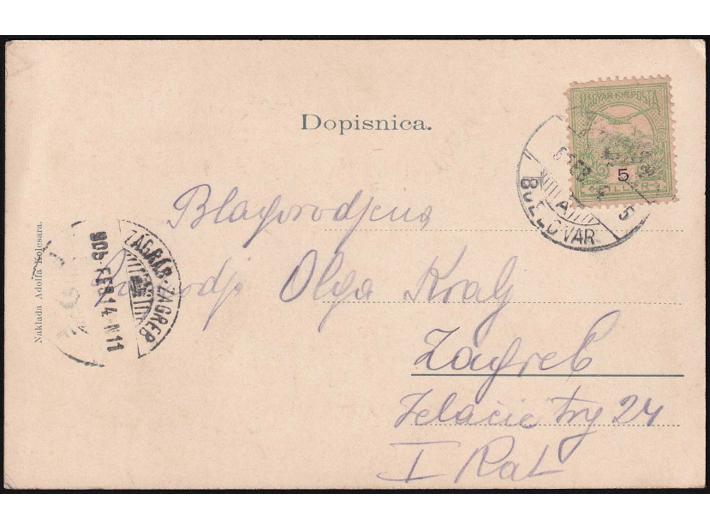 MAGYAR KIR. POSTA
5
Dopisnica.
BJELOVAR
A
Blagorodjena
Olga Kralj
Zagreb
Jelačić trg 24
I Kat
ZAGRÁB-ZAGREB
905 FEB 14 N 11
Naklada Adolfa Kolesara.